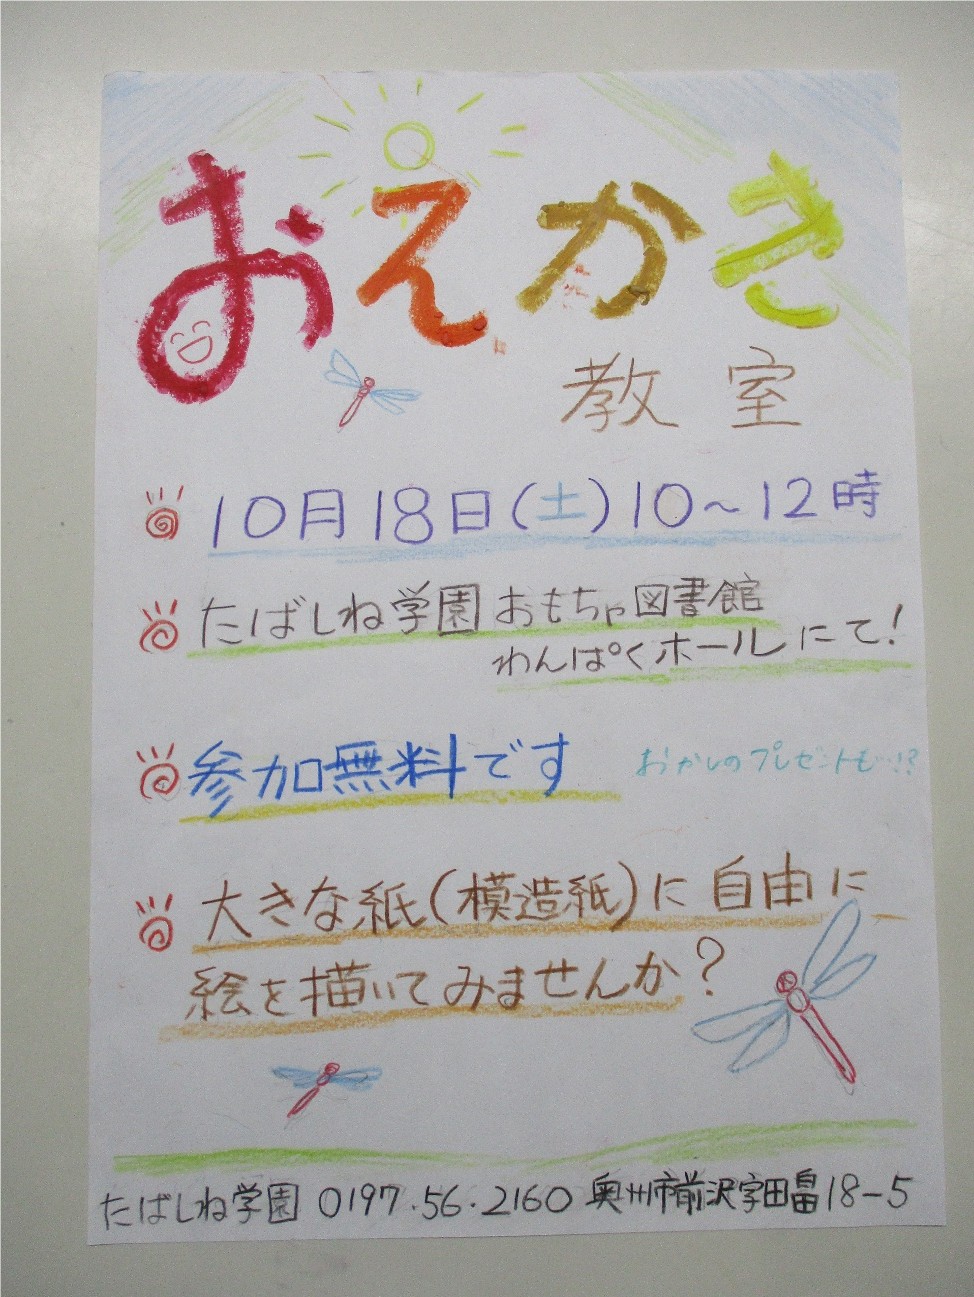 おえかき
教室
10月18日(土)10~12時
たばしね学園 おもちゃ図書館
わんぱくホールにて!
参加無料です
おかしのプレゼントも…!?
大きな紙(模造紙)に自由に
絵を描いてみませんか?
たばしね学園 0197.56.2160 奥州市前沢字田畠18-5